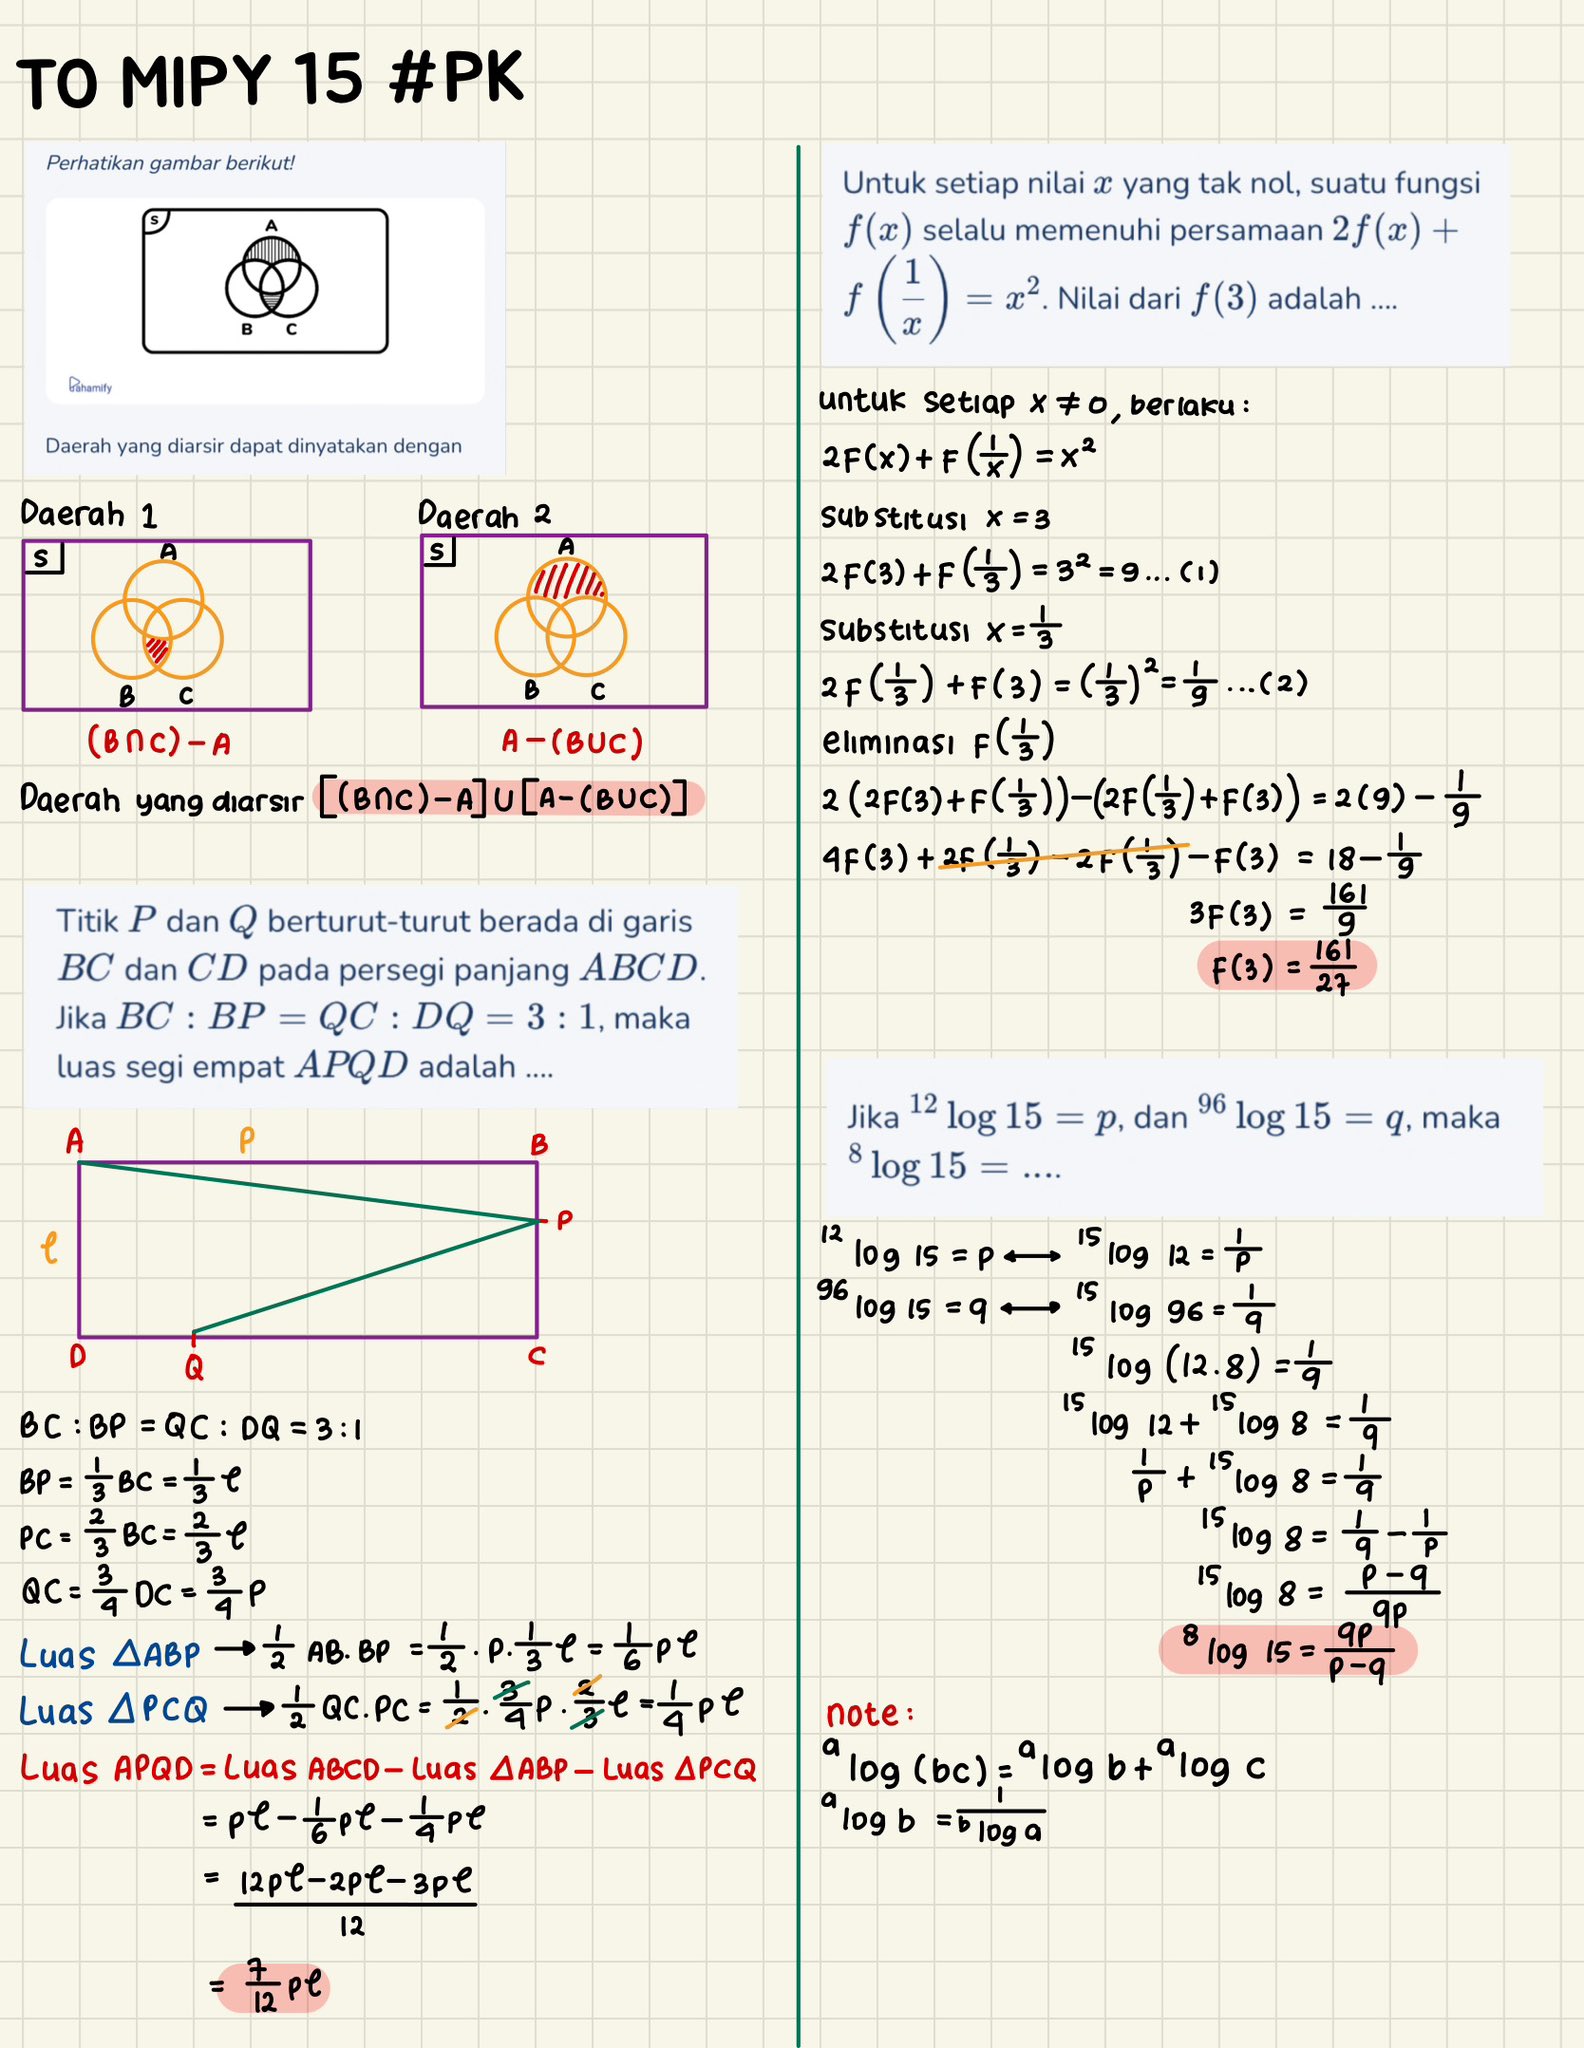 TO MIPY 15 #PK
Perhatikan gambar berikut!
S
A
B C
Pahamify
Daerah yang diarsir dapat dinyatakan dengan
Daerah 1
S
A
B C
(B∩C) - A
Daerah 2
S
A
B C
A - (B∪C)
Daerah yang diarsir [(B∩C)-A] ∪ [A-(B∪C)]
Titik P dan Q berturut-turut berada di garis
BC dan CD pada persegi panjang ABCD.
Jika BC : BP = QC : DQ = 3 : 1, maka
luas segi empat APQD adalah ....
A P B
ℓ P
D Q C
BC : BP = QC : DQ = 3 : 1
BP = 1/3 BC = 1/3 ℓ
PC = 2/3 BC = 2/3 ℓ
QC = 3/4 DC = 3/4 P
Luas △ABP → 1/2 AB. BP = 1/2 . P. 1/3 ℓ = 1/6 pℓ
Luas △PCQ → 1/2 QC. PC = 1/2 . 3/4 P . 2/3 ℓ = 1/4 pℓ
Luas APQD = Luas ABCD - Luas △ABP - Luas △PCQ
= pℓ - 1/6 pℓ - 1/4 pℓ
= (12pℓ - 2pℓ - 3pℓ)/12
= 7/12 pℓ
Untuk setiap nilai x yang tak nol, suatu fungsi
f(x) selalu memenuhi persamaan 2f(x) +
f(1/x) = x². Nilai dari f(3) adalah ....
untuk setiap x ≠ 0, berlaku :
2F(x) + F(1/x) = x²
substitusi x = 3
2F(3) + F(1/3) = 3² = 9 ... (1)
substitusi x = 1/3
2F(1/3) + F(3) = (1/3)² = 1/9 ... (2)
eliminasi F(1/3)
2 (2F(3) + F(1/3)) - (2F(1/3) + F(3)) = 2(9) - 1/9
4F(3) + 2F(1/3) - 2F(1/3) - F(3) = 18 - 1/9
3F(3) = 161/9
F(3) = 161/27
Jika ¹² log 15 = p, dan ⁹⁶ log 15 = q, maka
⁸ log 15 = ....
¹² log 15 = p ↔ ¹⁵ log 12 = 1/p
⁹⁶ log 15 = q ↔ ¹⁵ log 96 = 1/q
¹⁵ log (12.8) = 1/q
¹⁵ log 12 + ¹⁵ log 8 = 1/q
1/p + ¹⁵ log 8 = 1/q
¹⁵ log 8 = 1/q - 1/p
¹⁵ log 8 = (p - q)/qp
⁸ log 15 = qp/(p - q)
note :
ᵃ log (bc) = ᵃ log b + ᵃ log c
ᵃ log b = 1/(ᵇ log a)